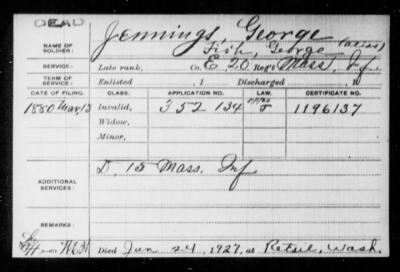 DEAD
Jennings, George
NAME OF SOLDIER: Fish, George (alias)
SERVICE: Late rank, Co. E 20 Reg't Mass. Inf.
TERM OF SERVICE: Enlisted , 1 Discharged , 1
DATE OF FILING. CLASS. APPLICATION NO. LAW. CERTIFICATE NO.
1880 Mar, 13 Invalid, 352 134 1196137
Widow,
Minor,
ADDITIONAL SERVICES: D. 15 Mass. Inf
REMARKS:
Died Jan 24, 1927, at Retsil, Wash.